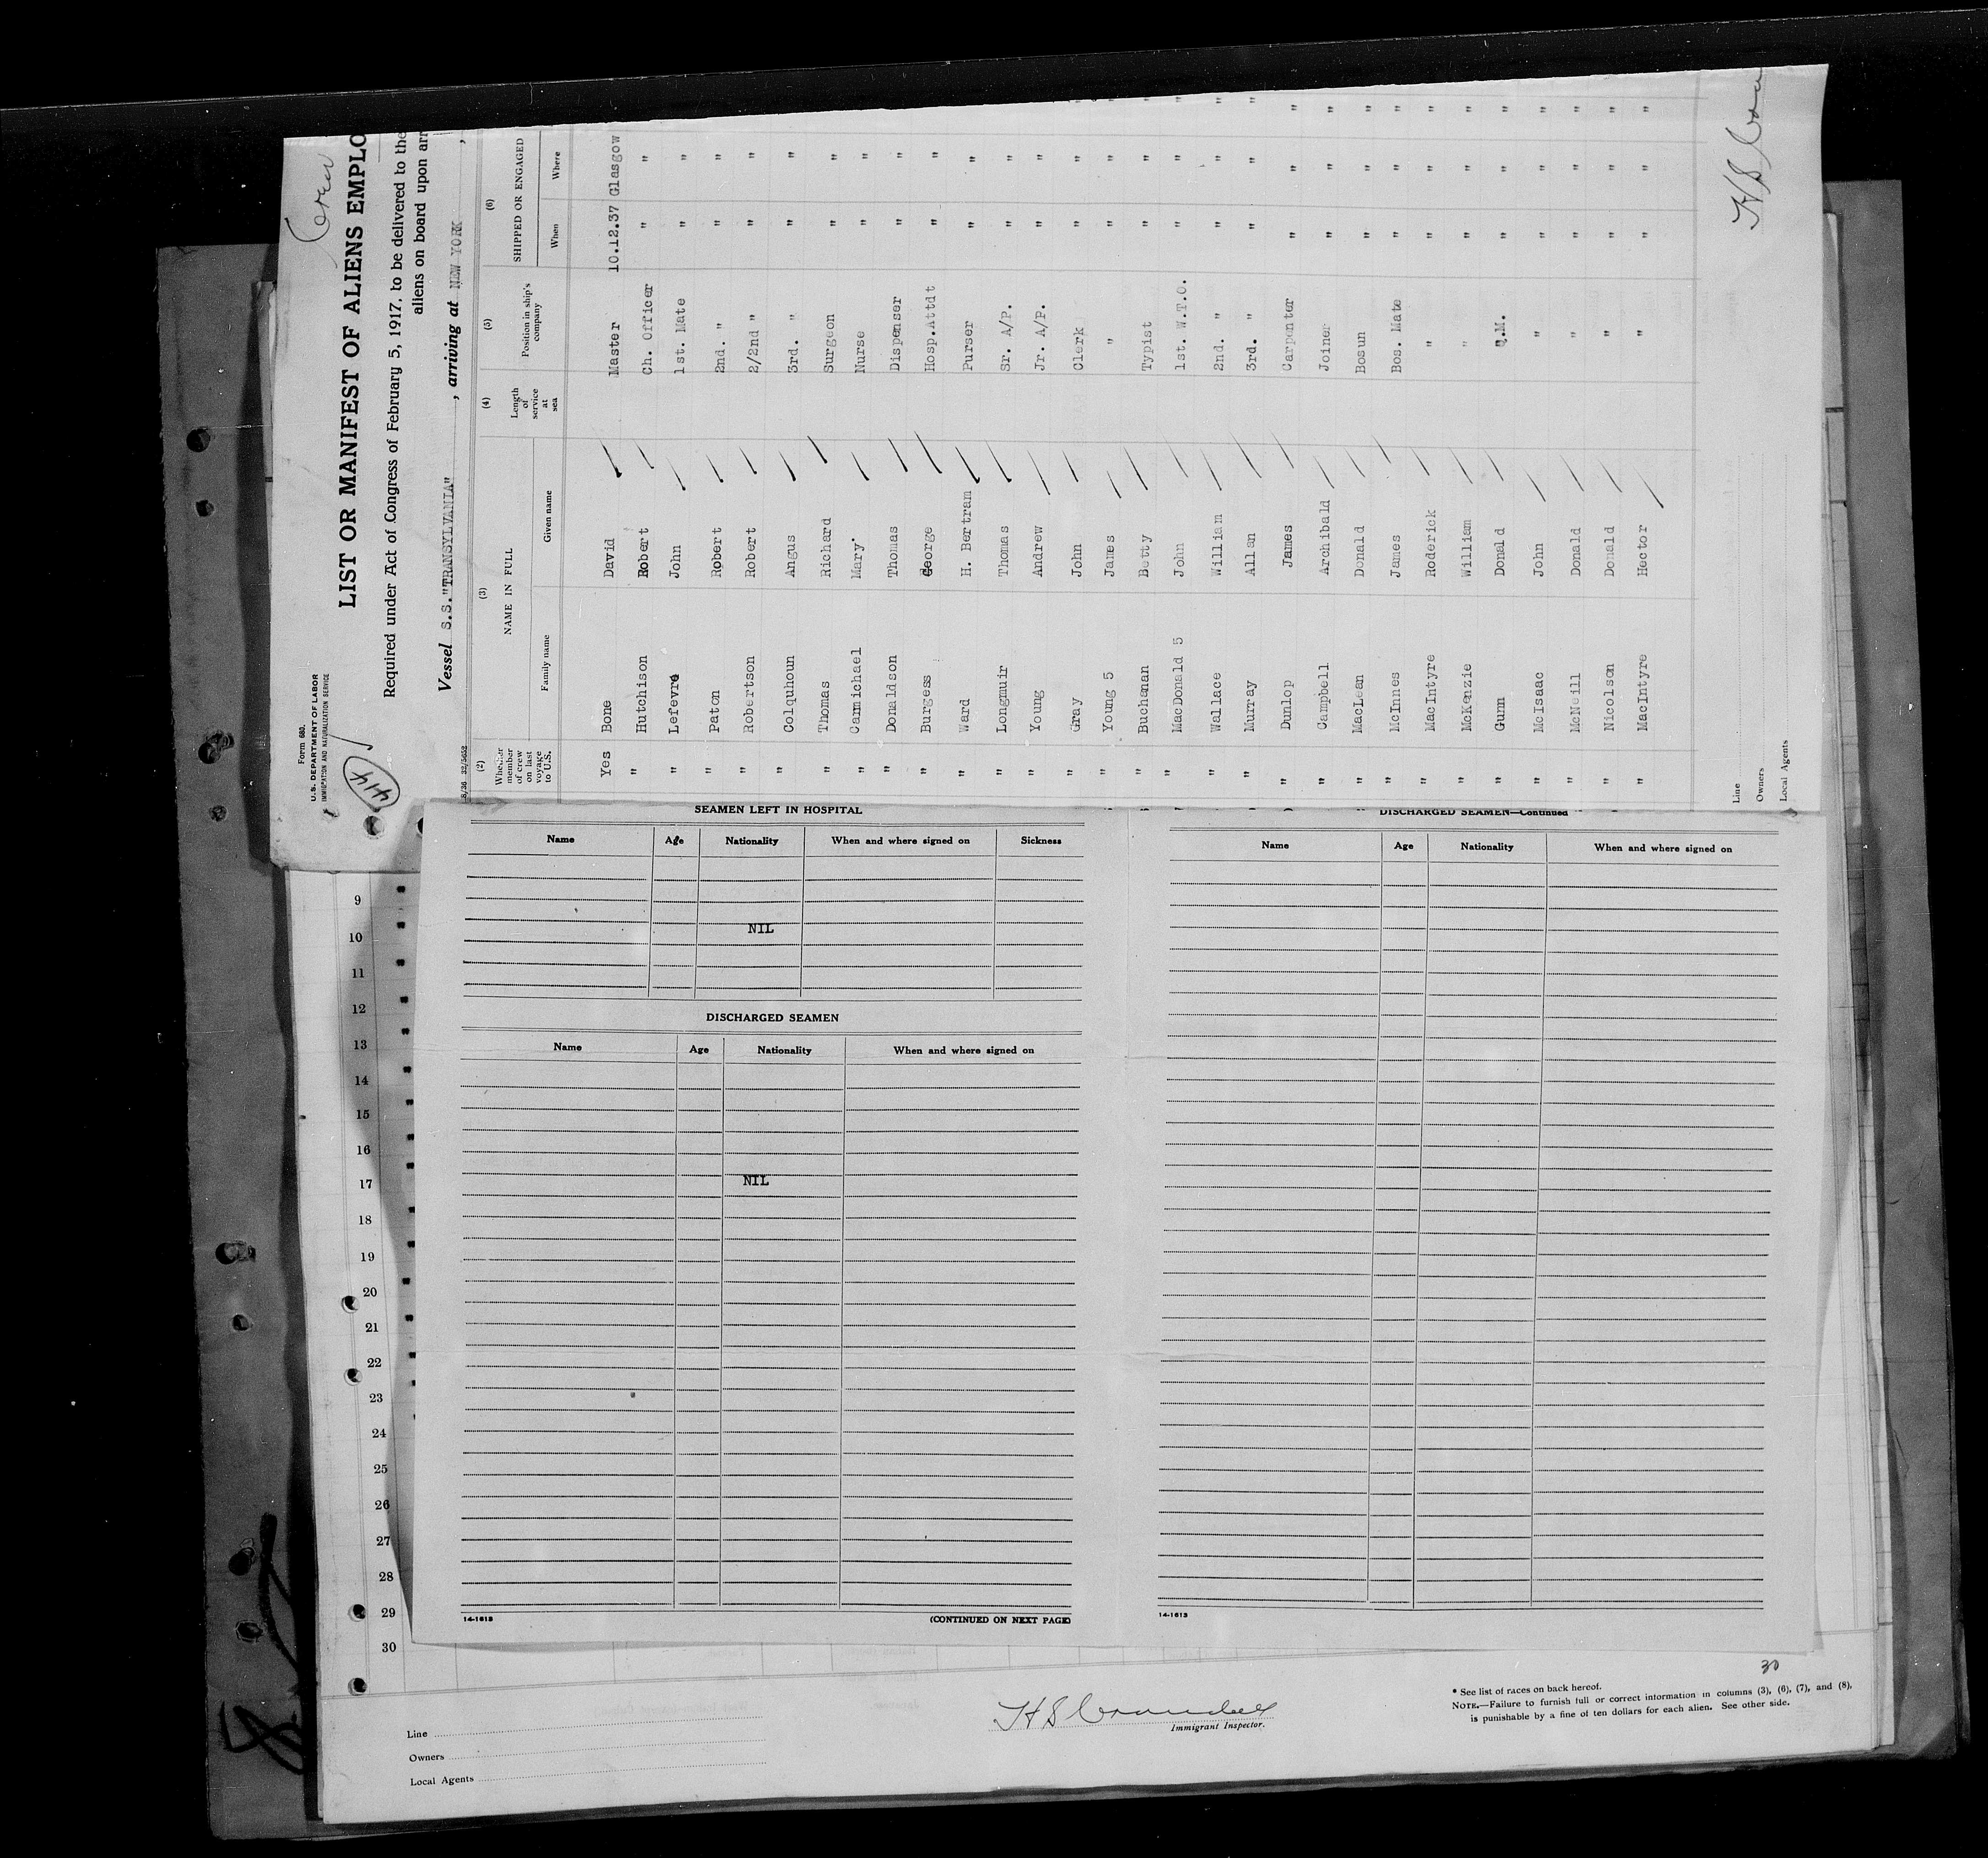 Form 680.
U.S. DEPARTMENT OF LABOR
IMMIGRATION AND NATURALIZATION SERVICE
414
Crew
LIST OR MANIFEST OF ALIENS EMPLO
Required under Act of Congress of February 5, 1917, to be delivered to the
aliens on board upon arr
Vessel S.S."TRANSYLVANIA" , arriving at NEW YORK ,
(2) (3) (4) (5) (6)
Whether member of crew on last voyage to U.S. NAME IN FULL Length of service at sea Position in ship's company SHIPPED OR ENGAGED
Family name Given name When Where
Yes Bone David Master 10.12.37 Glasgow
" Hutchison Robert Ch. Officer " " "
" Lefevre John 1st. Mate " " "
" Paton Robert 2nd. " " " "
" Robertson Robert 2/2nd " " " "
" Colquhoun Angus 3rd. " " " "
" Thomas Richard Surgeon " " "
" Carmichael Mary Nurse " " "
" Donaldson Thomas Dispenser " " "
" Burgess George Hosp.Attdt " " "
" Ward H. Bertram Purser " " "
" Longmuir Thomas Sr. A/P. " " "
" Young Andrew Jr. A/P. " " "
" Gray John Clerk " " "
" Young 5 James " " " "
" Buchanan Betty Typist " " "
" MacDonald 5 John 1st. W.T.O. " " "
" Wallace William 2nd. " " " "
" Murray Allan 3rd. " " " "
" Dunlop James Carpenter " " "
" Campbell Archibald Joiner " " "
" MacLean Donald Bosun " " "
" McInnes James Bos. Mate " " "
" MacIntyre Roderick " " " "
" McKenzie William " " " "
" Gunn Donald Q.M. " " "
" McIsaac John " " " "
" McNeill Donald " " " "
" Nicolson Donald " " " "
" MacIntyre Hector " " " "
Line
Owners
Local Agents
SEAMEN LEFT IN HOSPITAL
Name Age Nationality When and where signed on Sickness
NIL
DISCHARGED SEAMEN
Name Age Nationality When and where signed on
NIL
14-1613 (CONTINUED ON NEXT PAGE)
DISCHARGED SEAMEN—Continued
Name Age Nationality When and where signed on
14-1613
9
10
11
12
13
14
15
16
17
18
19
20
21
22
23
24
25
26
27
28
29
30
30
Line
Owners
Local Agents
Immigrant Inspector.
* See list of races on back hereof.
NOTE.—Failure to furnish full or correct information in columns (3), (6), (7), and (8),
is punishable by a fine of ten dollars for each alien. See other side.